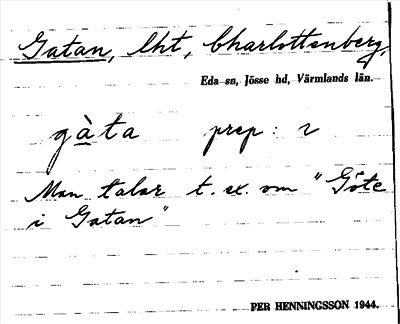 Gatan, lht, Charlottenberg,
Eda sn, Jösse hd, Värmlands län.
gàta prep: i
Man talar t. ex. om "Göte
i Gatan"
PER HENNINGSSON 1944.